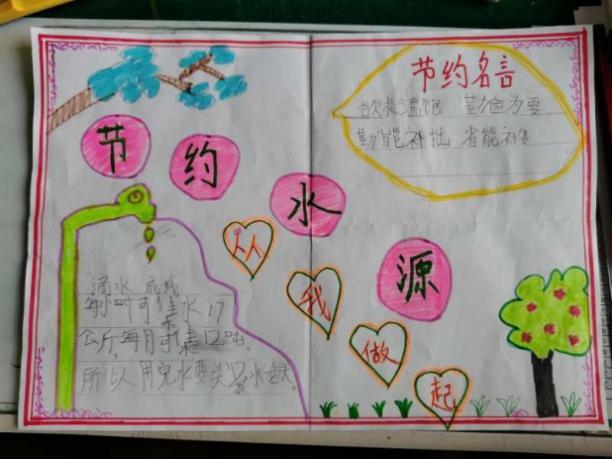 节约名言
欲求温饱 勤俭为要
勤能补拙 省能补
节
约
水
源
从
我
做
起
滴水成线
每小时可集水17
公斤,每月可集12吨.
所以用完水要关 水龙头